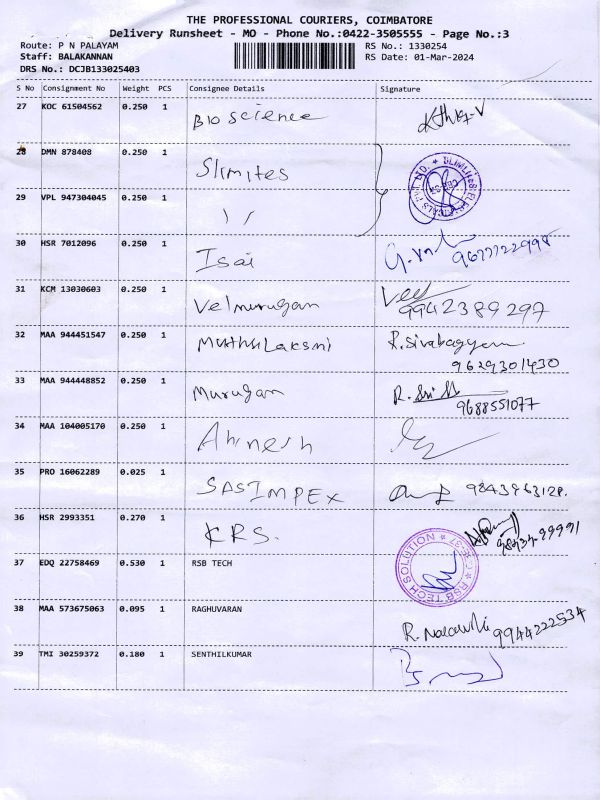 THE PROFESSIONAL COURIERS, COIMBATORE
Delivery Runsheet - MO - Phone No.:0422-3505555 - Page No.:3
Route: P N PALAYAM RS No.: 1330254
Staff: BALAKANNAN RS Date: 01-Mar-2024
DRS No.: DCJB133025403
S No Consignment No Weight PCS Consignee Details Signature
27 KOC 61504562 0.250 1 Bio science
28 DMN 878408 0.250 1 Slimites
29 VPL 947304045 0.250 1 "
30 HSR 7012096 0.250 1 Isai 9677722998
31 KCM 13030603 0.250 1 Velmurugan 9942389297
32 MAA 944451547 0.250 1 MuthuLakshmi R. Sivabagyam
9629301430
33 MAA 944448852 0.250 1 Murugan
9688551077
34 MAA 104005170 0.250 1
35 PRO 16062289 0.025 1 SASIMPEX 9843963128.
36 HSR 2993351 0.270 1 KRS.
37 EDQ 22758469 0.530 1 RSB TECH RSB TECH SOLUTION
38 MAA 573675063 0.095 1 RAGHUVARAN 9944222534
39 TMI 30259372 0.180 1 SENTHILKUMAR